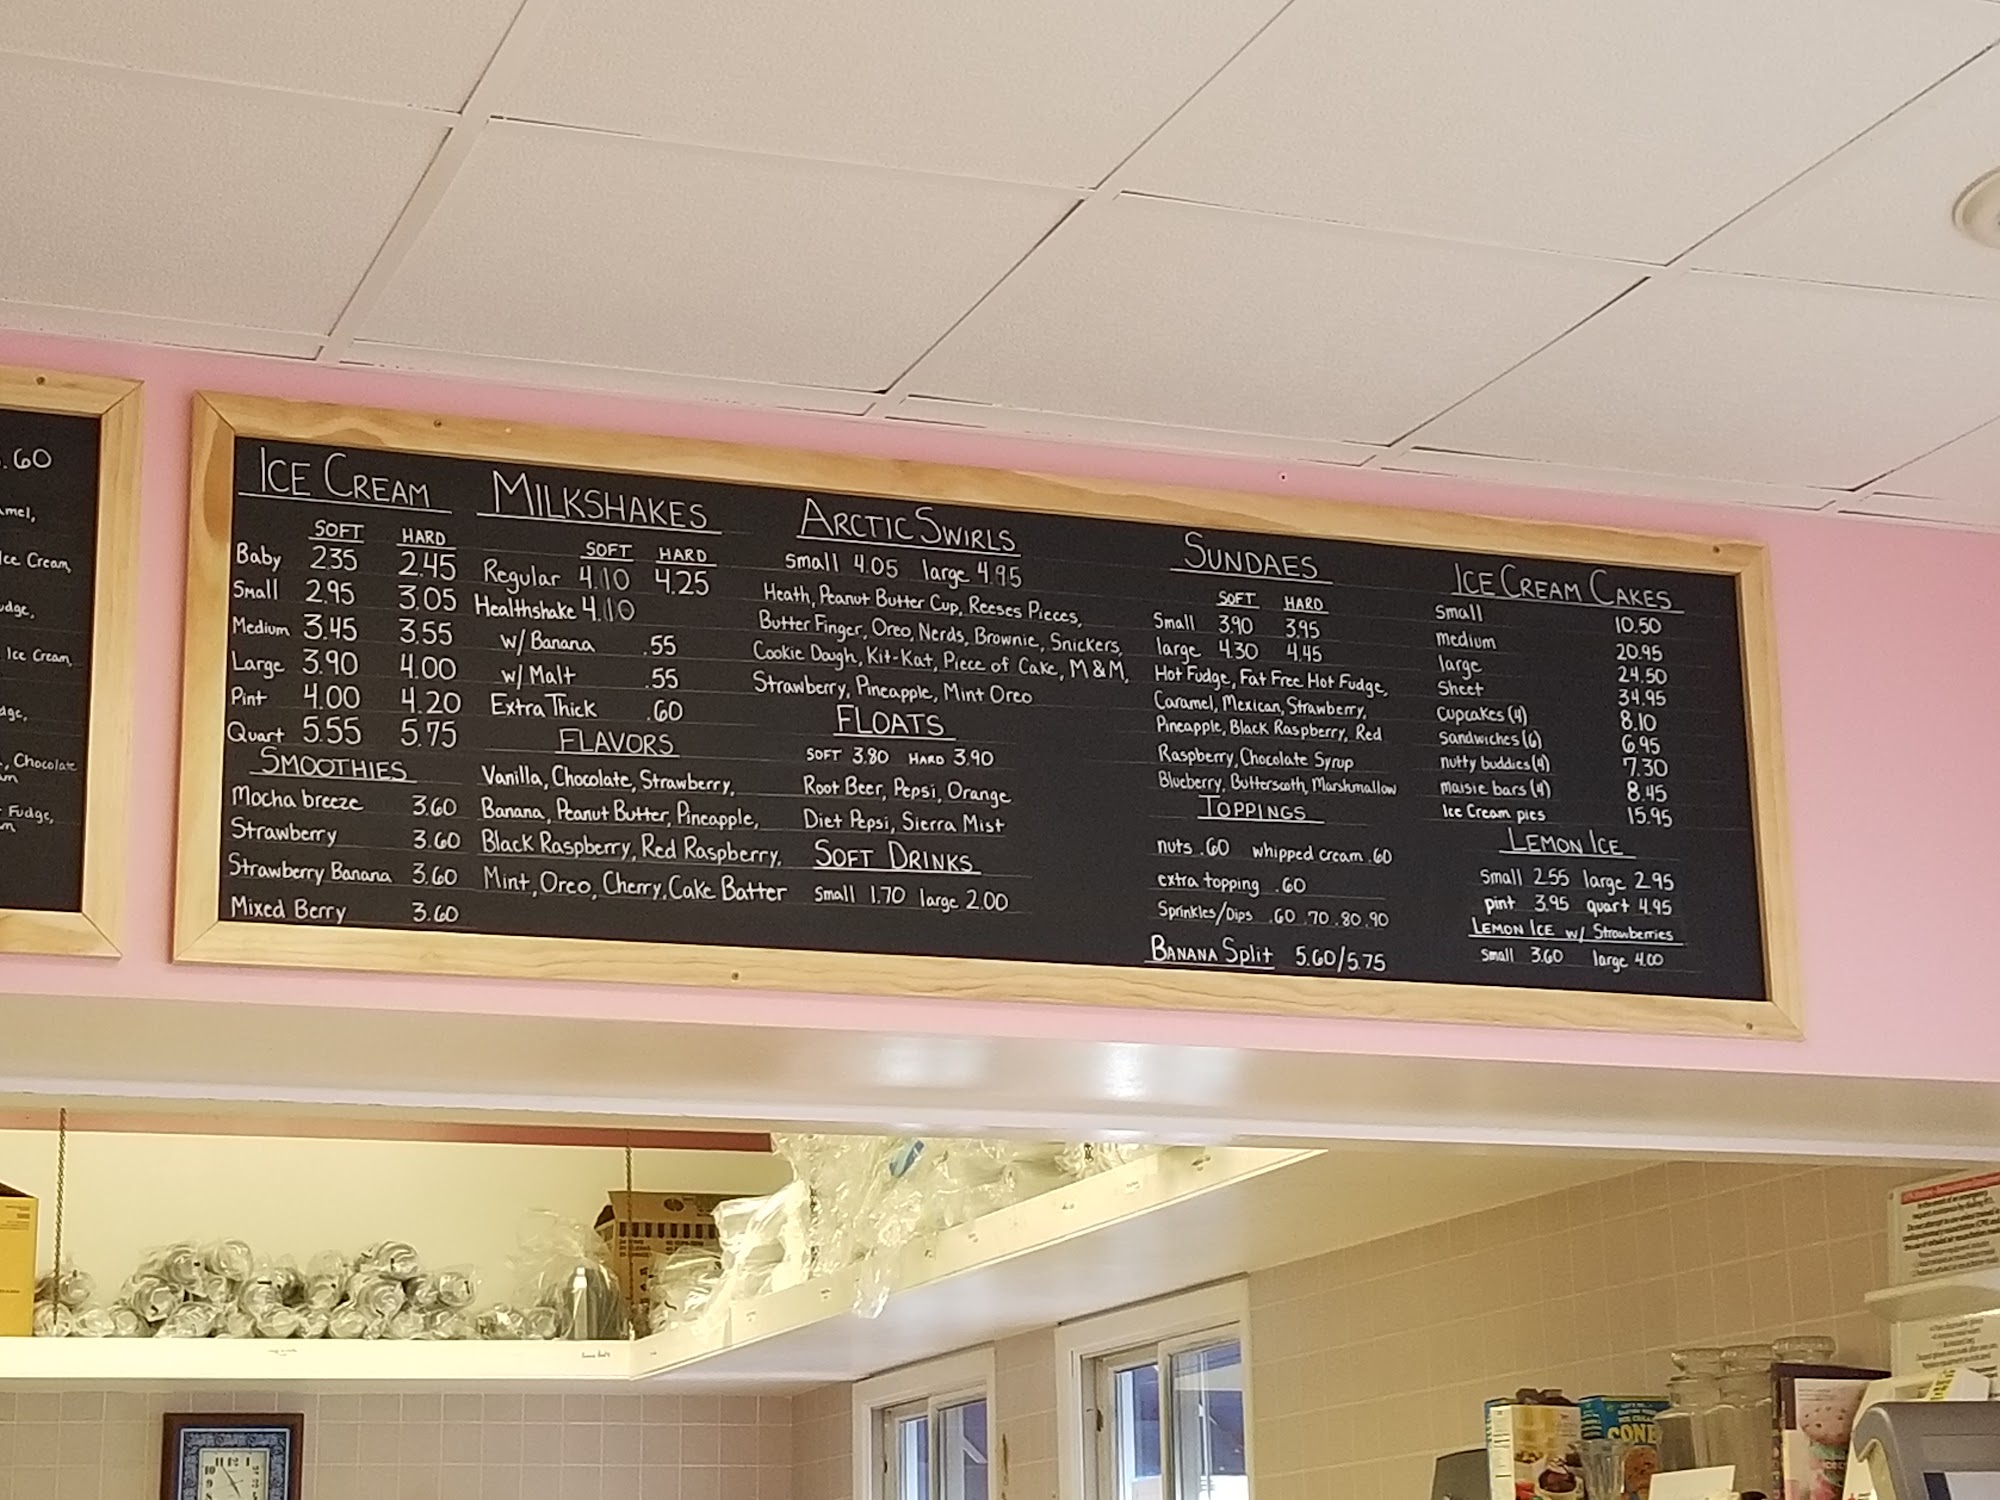 .60
mel,
ce Cream,
udge,
Ice Cream,
dge,
, Chocolate
Fudge,
ICE CREAM
SOFT HARD
Baby 2.35 2.45
Small 2.95 3.05
Medium 3.45 3.55
Large 3.90 4.00
Pint 4.00 4.20
Quart 5.55 5.75
SMOOTHIES
Mocha breeze 3.60
Strawberry 3.60
Strawberry Banana 3.60
Mixed Berry 3.60
MILKSHAKES
SOFT HARD
Regular 4.10 4.25
Healthshake 4.10
w/ Banana .55
w/ Malt .55
Extra Thick .60
FLAVORS
Vanilla, Chocolate, Strawberry,
Banana, Peanut Butter, Pineapple,
Black Raspberry, Red Raspberry,
Mint, Oreo, Cherry, Cake Batter
ARCTIC SWIRLS
Small 4.05 large 4.95
Heath, Peanut Butter Cup, Reeses Pieces,
Butter Finger, Oreo, Nerds, Brownie, Snickers,
Cookie Dough, Kit-Kat, Piece of Cake, M & M,
Strawberry, Pineapple, Mint Oreo
FLOATS
SOFT 3.80 HARD 3.90
Root Beer, Pepsi, Orange
Diet Pepsi, Sierra Mist
SOFT DRINKS
Small 1.70 large 2.00
SUNDAES
SOFT HARD
Small 3.90 3.95
large 4.30 4.45
Hot Fudge, Fat Free Hot Fudge,
Caramel, Mexican, Strawberry,
Pineapple, Black Raspberry, Red
Raspberry, Chocolate Syrup
Blueberry, Butterscoth, Marshmallow
TOPPINGS
nuts .60 whipped cream .60
extra topping .60
Sprinkles/Dips .60 .70 .80 .90
BANANA Split 5.60/5.75
ICE CREAM CAKES
Small 10.50
medium 20.95
large 24.50
Sheet 34.95
Cupcakes (4) 8.10
Sandwiches (6) 6.95
nutty buddies (4) 7.30
maisie bars (4) 8.45
Ice Cream pies 15.95
LEMON ICE
Small 2.55 large 2.95
pint 3.95 quart 4.95
LEMON ICE w/ Strawberries
Small 3.60 large 4.00
CONE